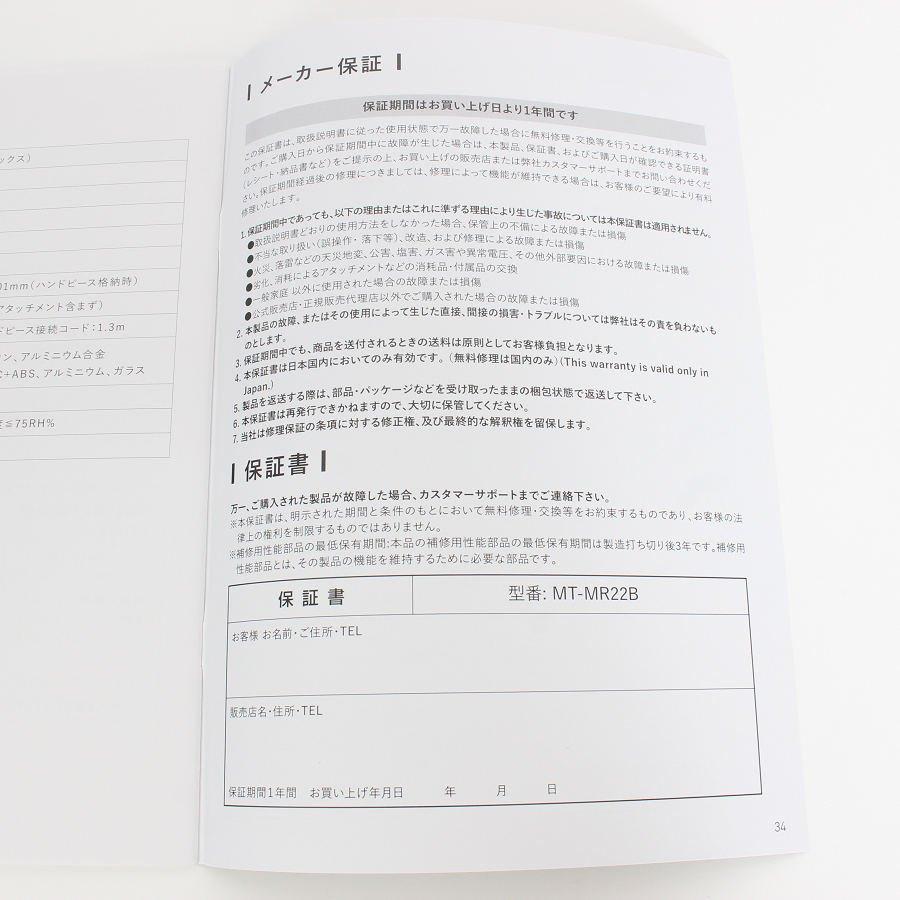 ックス)
01mm(ハンドピース格納時)
アタッチメント含まず)
ドピース接続コード:1.3m
ン、アルミニウム合金
C+ABS、アルミニウム、ガラス
≦75RH%
メーカー保証
保証期間はお買い上げ日より1年間です
この保証書は、取扱説明書に従った使用状態で万一故障した場合に無料修理・交換等を行うことをお約束するも
のです。ご購入日から保証期間中に故障が生じた場合は、本製品、保証書、およびご購入日が確認できる証明書
(レシート・納品書など)をご提示の上、お買い上げの販売店または弊社カスタマーサポートまでお問い合わせくだ
さい。保証期間経過後の修理につきましては、修理によって機能が維持できる場合は、お客様のご要望により有料
修理いたします。
1. 保証期間中であっても、以下の理由またはこれに準ずる理由により生じた事故については本保証書は適用されません。
●取扱説明書どおりの使用方法をしなかった場合、保管上の不備による故障または損傷
●不当な取り扱い(誤操作・落下等)、改造、および修理による故障または損傷
●火災、落雷などの天災地変、公害、塩害、ガス害や異常電圧、その他外部要因における故障または損傷
●劣化、消耗によるアタッチメントなどの消耗品・付属品の交換
●一般家庭 以外に使用された場合の故障または損傷
●公式販売店・正規販売代理店以外でご購入された場合の故障または損傷
2. 本製品の故障、またはその使用によって生じた直接、間接の損害・トラブルについては弊社はその責を負わないも
のとします。
3. 保証期間中でも、商品を送付されるときの送料は原則としてお客様負担となります。
4. 本保証書は日本国内においてのみ有効です。(無料修理は国内のみ)(This warranty is valid only in
Japan.)
5. 製品を返送する際は、部品・パッケージなどを受け取ったままの梱包状態で返送して下さい。
6. 本保証書は再発行できかねますので、大切に保管してください。
7. 当社は修理保証の条項に対する修正権、及び最終的な解釈権を留保します。
保証書
万一、ご購入された製品が故障した場合、カスタマーサポートまでご連絡下さい。
※本保証書は、明示された期間と条件のもとにおいて無料修理・交換等をお約束するものであり、お客様の法
律上の権利を制限するものではありません。
※補修用性能部品の最低保有期間:本品の補修用性能部品の最低保有期間は製造打ち切り後3年です。補修用
性能部品とは、その製品の機能を維持するために必要な部品です。
保証書 型番: MT-MR22B
お客様 お名前・ご住所・TEL
販売店名・住所・TEL
保証期間1年間 お買い上げ年月日 年 月 日
34